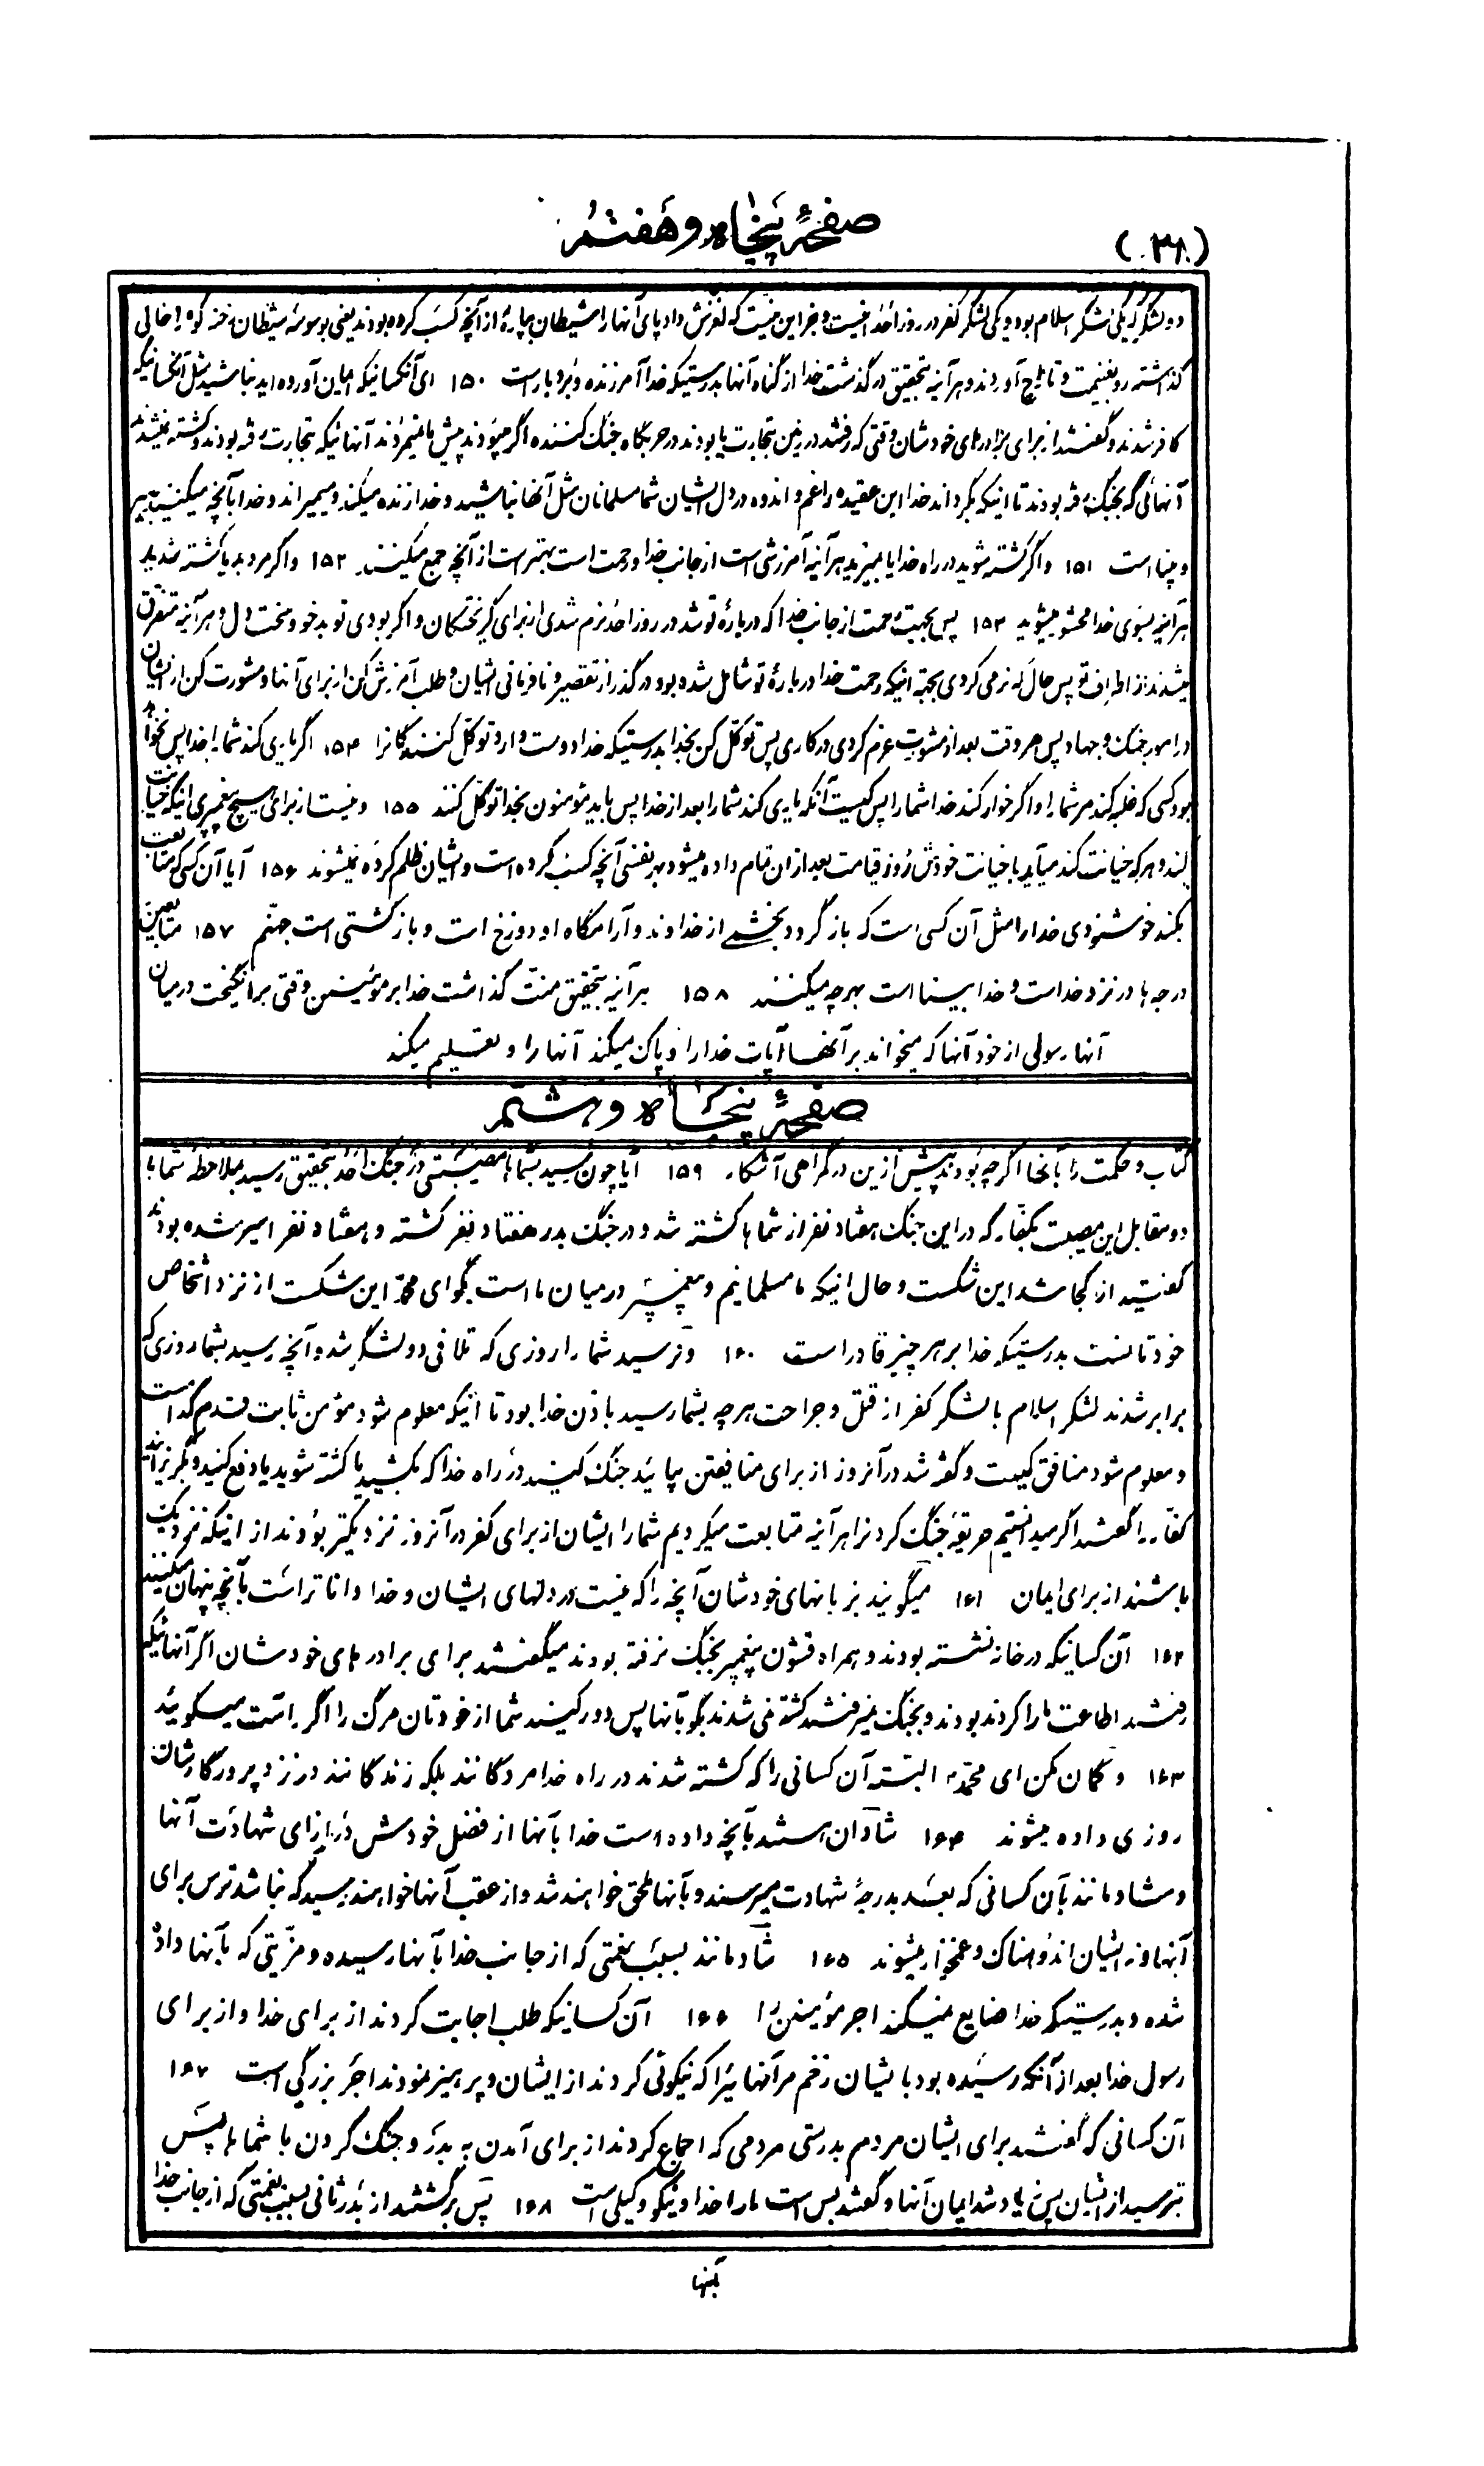 (۳۸)
صفحهٔ پنجاه و هفتم
دو لشگر که یکی لشگر اسلام بود و یکی لشگر کفر در روز احد نیست و جز این نیست که لغزش داد پای آنها را شیطان بپارهٔ از آنچه کسب کرده بودند یعنی بوسوسهٔ شیطان رخنه کوه را خالی
گذاشته رو بغنیمت و تاراج آوردند و هر آینه بتحقیق در گذشت خدا از گناه آنها بدرستیکه خدا آمرزنده و بردبار است ۱۵۰ ای آنکسانیکه ایمان آورده اید نباشید مثل آنکسانیکه
کافر شدند و گفتند از برای برادرهای خودشان وقتی که رفتند در زمین بتجارت یا بودند در حربگاه جنگ کننده اگر میبودند پیش ما نمیمردند آنهائیکه بتجارت رفته بودند و کشته نمیشدند
آنهائی که بجنگ رفته بودند تا اینکه بگرداند خدا این عقیده را غم و اندوه در دل ایشان شما مسلمانان مثل آنها نباشید و خدا زنده میکند و میمیراند و خدا بآنچه میکنید بصیر
و بینا است ۱۵۱ و اگر کشته شوید در راه خدا یا بمیرید هر آینه آمرزشی است از جانب خدا و رحمت است بهتر است از آنچه جمع میکنند ۱۵۲ و اگر مردید یا کشته شدید
هر آینه بسوی خدا محشور میشوید ۱۵۳ پس بجهت رحمت از جانب خدا که دربارهٔ تو شد در روز احد نرم شدی از برای گریختگان و اگر بودی تو بدخو و سخت دل و هر آینه متفرق
میشدند از اطراف تو پس حال که نرمی کردی بجهة اینکه رحمت خدا دربارهٔ تو شامل شده بود در گذر از تقصیر و نافرمانی ایشان و طلب آمرزش کن از برای آنها و مشورت کن از ایشان
در امور جنگ و جهاد پس هر وقت بعد از مشورت عزم کردی در کاری پس توکّل کن بخدا بدرستیکه خدا دوست دارد توکّل کنندگانرا ۱۵۴ اگر یاری کند شما را خدا پس نخواهد
بود کسی که غلبه کند مر شما را و اگر خوار کند خدا شما را پس کیست آنکه یاری کند شما را بعد از خدا پس باید مؤمنون بخدا توکّل کنند ۱۵۵ و نیست از برای هیچ پیغمبری اینکه خیانت
کند و هر که خیانت کند میآید با خیانت خودش روز قیامت بعد از ان تمام داده میشود بهر نفسی آنچه کسب کرده است و ایشان ظلم کرده نمیشوند ۱۵۶ آیا آن کسی که متابعت
بکند خوشنودی خدا را مثل آن کسی است که باز گردد بخشمی از خداوند و آرامگاه او دوزخ است و باز گشتی است جهنّم ۱۵۷ متابعین
درجه ها در نزد خداست و خدا بینا است بهر چه میکنند ۱۵۸ هر آینه بتحقیق منّت گذاشت خدا بر مؤمنین وقتی برانگیخت در میان
آنها رسولی از خود آنها که میخواند بر آنها آیات خدا را و پاک میکند آنها را و تعلیم میکند
صفحهٔ پنجاه و هشتم
کتاب و حکمت را بآنها اگر چه بودند پیش ازین در گمراهی آشکار ۱۵۹ آیا چون رسید بشماها مصیبتی در جنگ احد بتحقیق رسید بملاحظهٔ شماها
دو مقابل این مصیبت بکفّار که در این جنگ هفتاد نفر از شماها کشته شد و در جنگ بدر هفتاد نفر کشته و هفتاد نفر اسیر شده بودند
گفتید از کجا شد این شکست و حال اینکه ما مسلمانیم و پیغمبر در میان ما است بگو ای محمّد این شکست از نزد اشخاص
خودتانست بدرستیکه خدا بر هر چیز قادر است ۱۶۰ و نرسید شما را روزی که تلاقی دو لشگر شد آنچه رسید بشما روزی که
برابر شدند لشکر اسلام با لشگر کفر از قتل و جراحت هر چه بشما رسید باذن خدا بود تا اینکه معلوم شود مؤمن ثابت قدم کدامست
و معلوم شود منافق کیست و گفته شد در آنروز از برای منافقین بیائید جنگ کنید در راه خدا که بکشید یا کشته شوید یا دفع کنید و بگریزانید
کفّار را گفتند اگر میدانستیم طریقهٔ جنگ کردنرا هر آینه متابعت میکردیم شما را ایشان از برای کفر در آنروز نزدیکتر بودند از اینکه نزدیک
باشند از برای ایمان ۱۶۱ میگویند بزبانهای خودشان آنچه را که نیست در دلهای ایشان و خدا داناتر است بآنچه پنهان میکنند
۱۶۲ آن کسانیکه در خانه نشسته بودند و همراه قشون پیغمبر بجنگ نرفته بودند میگفتند برای برادرهای خودشان اگر آنهائیکه
رفتند اطاعت ما را کرده بودند و بجنگ نمیرفتند کشته نمی شدند بگو بآنها پس دور کنید شما از خودتان مرگ را اگر راست میگوئید
۱۶۳ و گمان مکن ای محمّد البته آن کسانی را که کشته شدند در راه خدا مردگانند بلکه زندگانند در نزد پروردگارشان
روزی داده میشوند ۱۶۴ شادان هستند بآنچه داده است خدا بآنها از فضل خودش در ازای شهادت آنها
و شادمانند بآن کسانی که بعد بدرجهٔ شهادت میرسند و بآنها ملحق خواهند شد و از عقب آنها خواهند رسید که نباشد ترس برای
آنها و نه ایشان اندوهناک و غمخوار میشوند ۱۶۵ شادمانند بسبب نعمتی که از جانب خدا بآنها رسیده و مزیّتی که بآنها داده
شده و بدرستیکه خدا ضایع نمیکند اجر مؤمنین را ۱۶۶ آن کسانیکه طلب اجابت کردند از برای خدا و از برای
رسول خدا بعد از آنکه رسیده بود بایشان زخم مر آنهائیرا که نیکوئی کردند از ایشان و پرهیز نمودند اجر بزرگی است ۱۶۷
آن کسانی که گفتند برای ایشان مردم بدرستی مردمی که اجماع کردند از برای آمدن به بدر و جنگ کردن با شماها پس
بترسید از ایشان پس زیاد شد ایمان آنها و گفتند بس است ما را خدا و نیکو وکیلی است ۱۶۸ پس برگشتند از بدر ثانی بسبب نعمتی که از جانب خدا
بآنها